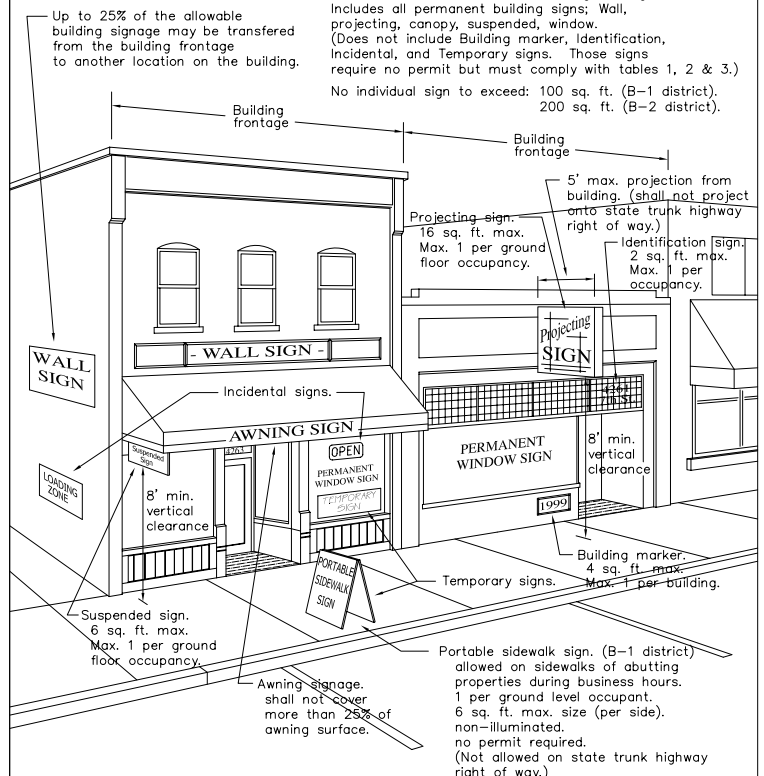 Up to 25% of the allowable
building signage may be transfered
from the building frontage
to another location on the building.
Includes all permanent building signs; Wall,
projecting, canopy, suspended, window.
(Does not include Building marker, Identification,
Incidental, and Temporary signs. Those signs
require no permit but must comply with tables 1, 2 & 3.)
No individual sign to exceed: 100 sq. ft. (B-1 district).
200 sq. ft. (B-2 district).
Building
frontage
Building
frontage
5' max. projection from
building. (shall not project
onto state trunk highway
right of way.)
Projecting sign.
16 sq. ft. max.
Max. 1 per ground
floor occupancy.
Identification sign.
2 sq. ft. max.
Max. 1 per
occupancy.
Projecting
SIGN
WALL
SIGN
- WALL SIGN -
Incidental signs.
4261
7th St.
AWNING SIGN
Suspended
Sign
4263
OPEN
PERMANENT
WINDOW SIGN
TEMPORARY
SIGN
PERMANENT
WINDOW SIGN
8' min.
vertical
clearance
LOADING
ZONE
8' min.
vertical
clearance
1999
Building marker.
4 sq. ft. max.
Max. 1 per building.
PORTABLE
SIDEWALK
SIGN
Temporary signs.
Suspended sign.
6 sq. ft. max.
Max. 1 per ground
floor occupancy.
Portable sidewalk sign. (B-1 district)
allowed on sidewalks of abutting
properties during business hours.
1 per ground level occupant.
6 sq. ft. max. size (per side).
non-illuminated.
no permit required.
(Not allowed on state trunk highway
right of way.)
Awning signage.
shall not cover
more than 25% of
awning surface.